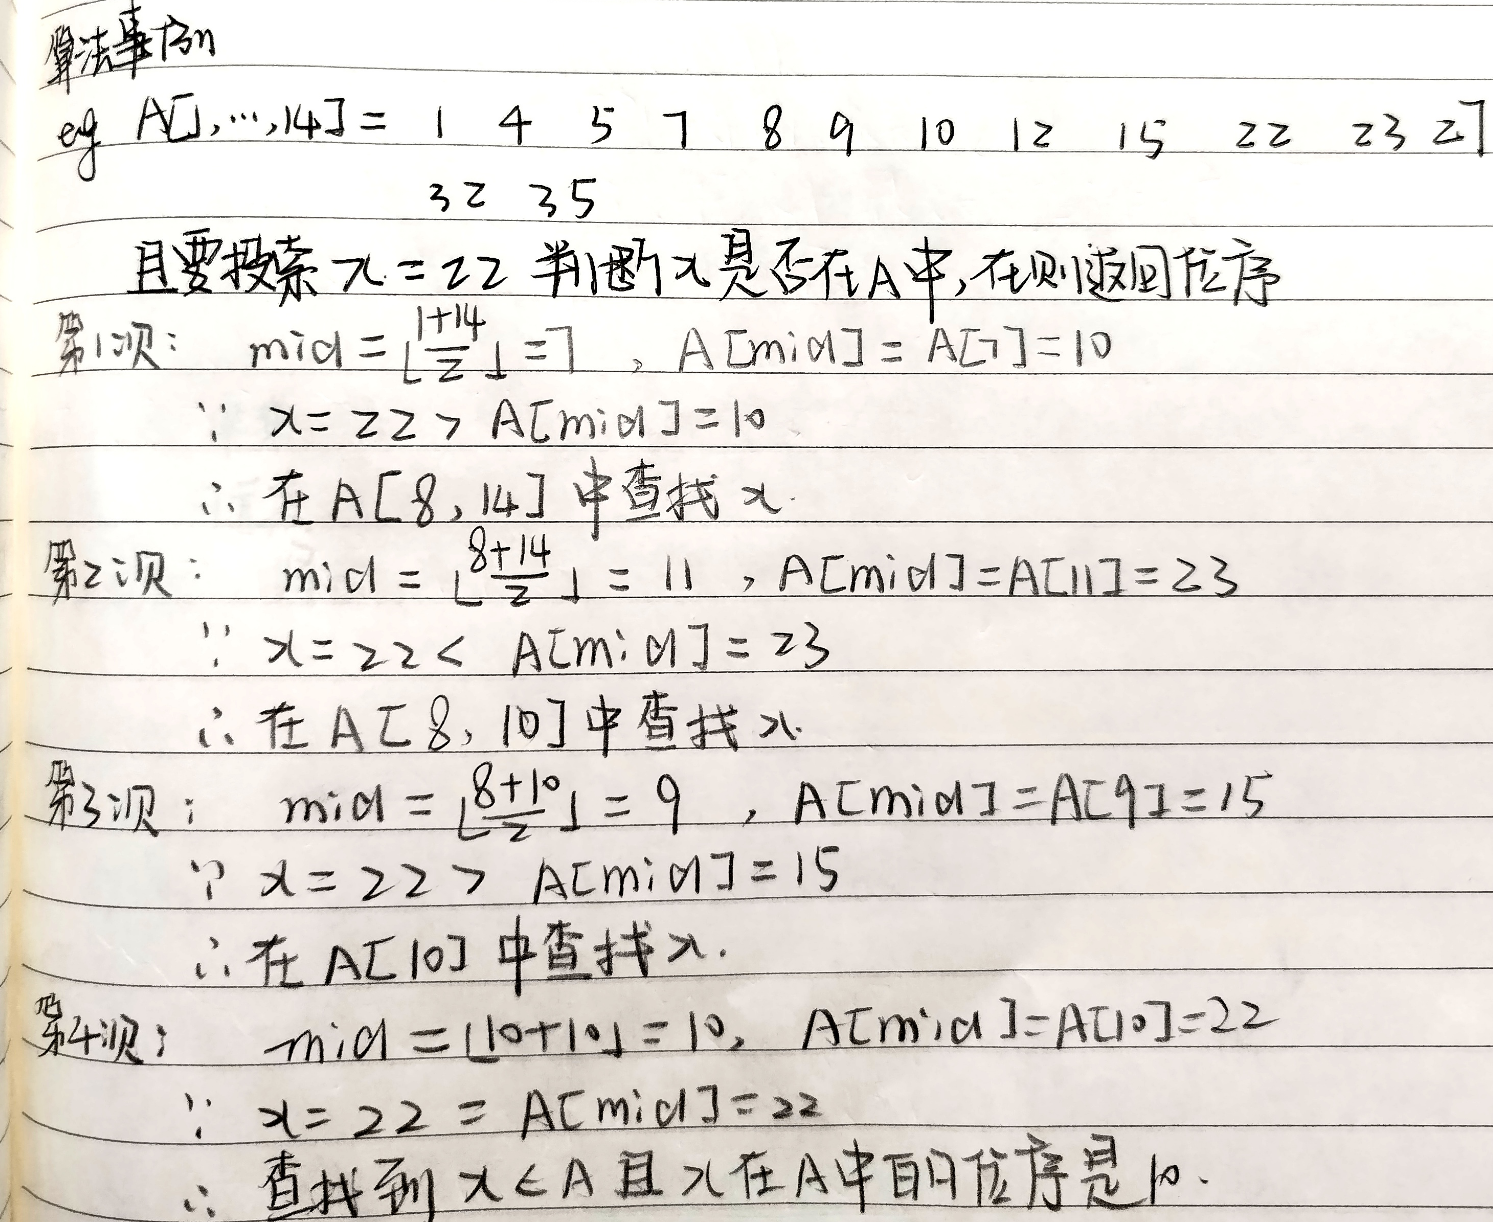 算法事例
eg A[1,…,14] = 1 4 5 7 8 9 10 12 15 22 23 27
32 35
且要搜索 x = 22 判断x是否在A中,在则返回位序
第1次: mid = ⌊(1+14)/2⌋ = 7 , A[mid] = A[7] = 10
∵ x = 22 > A[mid] = 10
∴ 在 A[8, 14] 中查找 x.
第2次: mid = ⌊(8+14)/2⌋ = 11 , A[mid] = A[11] = 23
∵ x = 22 < A[mid] = 23
∴ 在 A[8, 10] 中查找 x.
第3次: mid = ⌊(8+10)/2⌋ = 9 , A[mid] = A[9] = 15
∵ x = 22 > A[mid] = 15
∴ 在 A[10] 中查找 x.
第4次: mid = ⌊10+10⌋ = 10, A[mid] = A[10] = 22
∵ x = 22 = A[mid] = 22
∴ 查找到 x ∈ A 且 x 在 A 中的位序是 10.